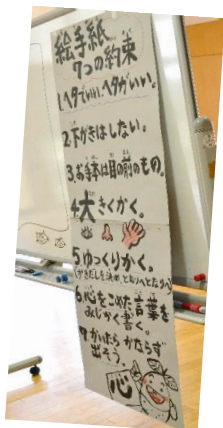 絵手紙
7つの約束
1.ヘタでいい、ヘタがいい。
2.下がきはしない。
3.お手本は目の前のもの。
4.大きくかく。
5.ゆっくりかく。
6.心をこめた言葉を
みじかく書く。
7.かいたらかならず
出そう。
心